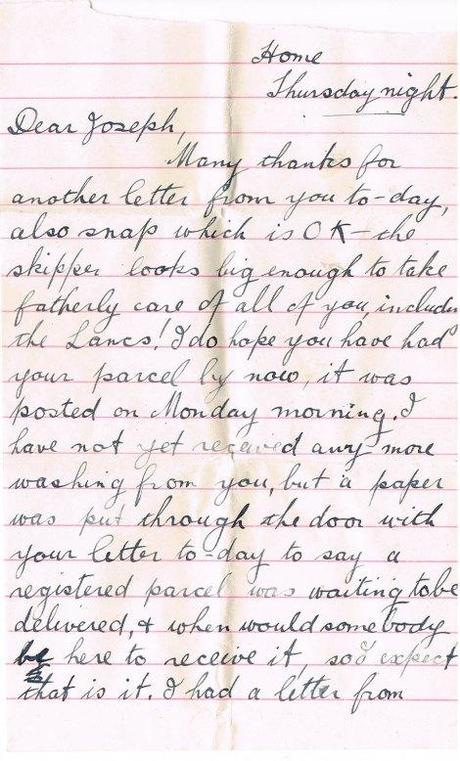 Home
Thursday night.
Dear Joseph,
Many thanks for
another letter from you to-day,
also snap which is OK – the
skipper looks big enough to take
fatherly care of all of you, includin
the Lancs! I do hope you have had
your parcel by now, it was
posted on Monday morning. I
have not yet received any more
washing from you, but a paper
was put through the door with
your letter to-day to say a
registered parcel was waiting to be
delivered, & when would somebody
be here to receive it, so I expect
that is it. I had a letter from